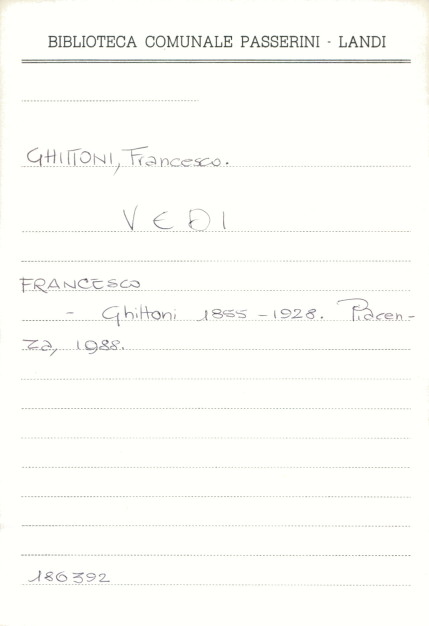 BIBLIOTECA COMUNALE PASSERINI - LANDI
GHITTONI, Francesco.
VEDI
FRANCESCO
- Ghittoni 1855 - 1928. Piacen-
za, 1988.
186392